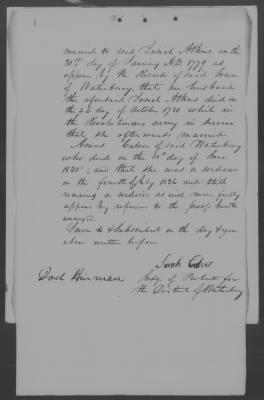 married to said Josiah Atkins on the
31st day of January A.D. 1779 as
appears by the Records of said Town
of Waterbury, that her husband
the aforesaid Josiah Atkins died on
the 2d day of October 1781 while in
the Revolutionary army in service
that she afterwards married
Amos Culver of said Waterbury
who died on the 30th day of June
1820; and that she was a widow
on the fourth of July 1836 and still
remains a widow, as will more fully
appear by reference to the proof hereto
annexed.
Sworn to & subscribed on the day & year
above written before
Sarah Culver
Judge of Probate for
the District of Waterbury